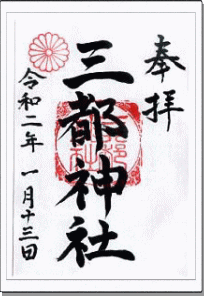 奉拝
三都神社
令和二年 一月十三日